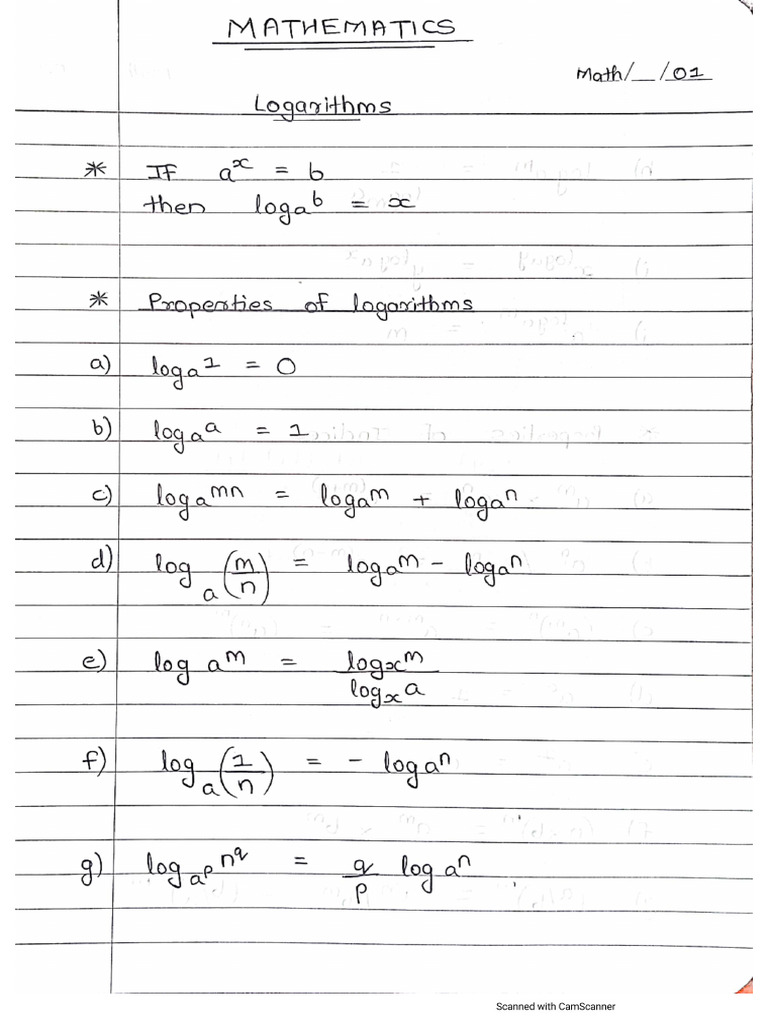 MATHEMATICS
Math/__/01
Logarithms
* If aˣ = b
then logₐb = x
* Properties of logarithms
a) logₐ1 = 0
b) logₐa = 1
c) logₐmn = logₐm + logₐn
d) logₐ(m/n) = logₐm - logₐn
e) log aᵐ = logₓm / logₓa
f) logₐ(1/n) = - logₐn
g) log_{a^p} n^q = q/p logₐn
Scanned with CamScanner